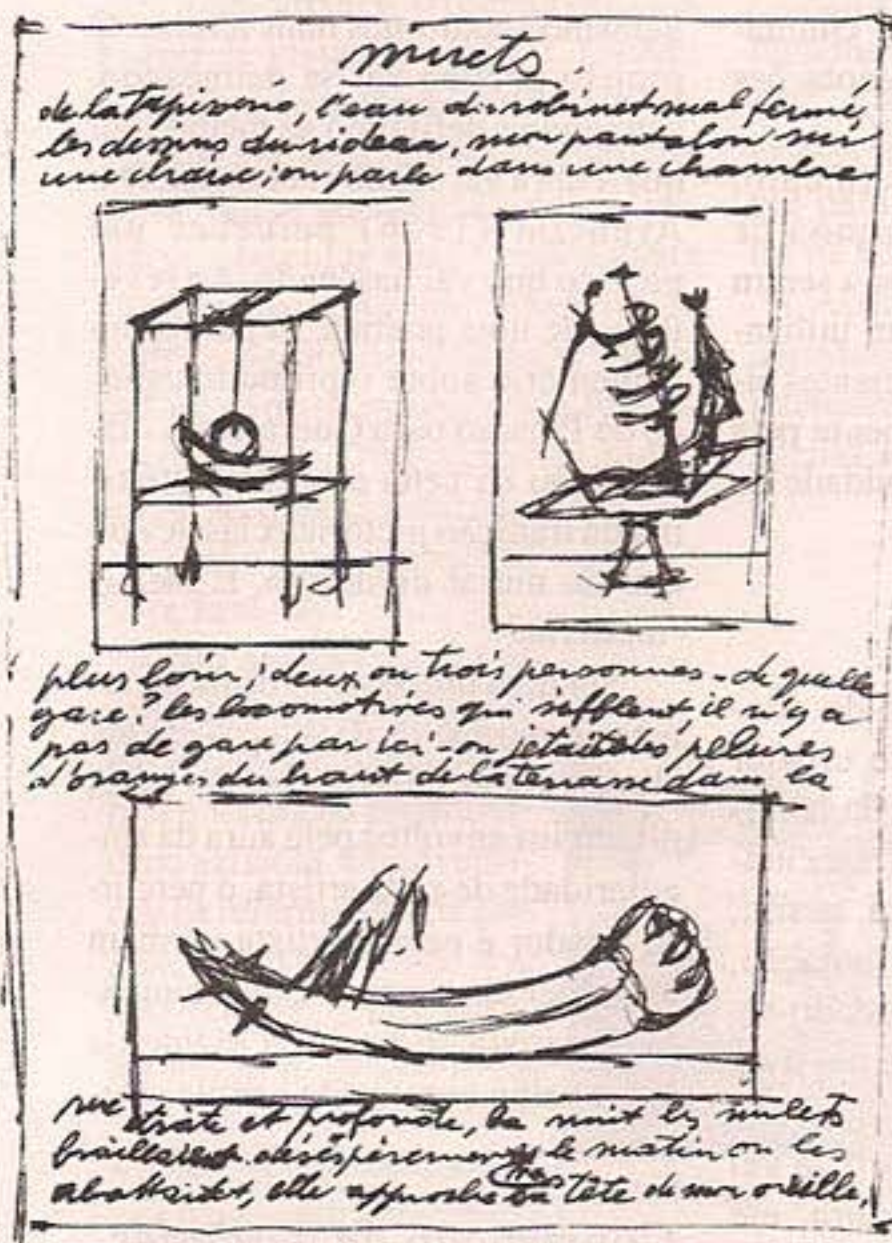 muets
de la tapisserie, l'eau du robinet mal fermé,
les dessins du rideau, mon pantalon sur
une chaise; on parle dans une chambre
plus loin; deux ou trois personnes - de quelle
gare? les locomotives qui sifflent, il n'y a
pas de gare par ici - on jetait les pelures
d'oranges du haut de la terrasse dans la
rue étroite et profonde, la nuit les mulets
braillaient désespérement le matin on les
abattait, elle approche sa tête de mon oreille,